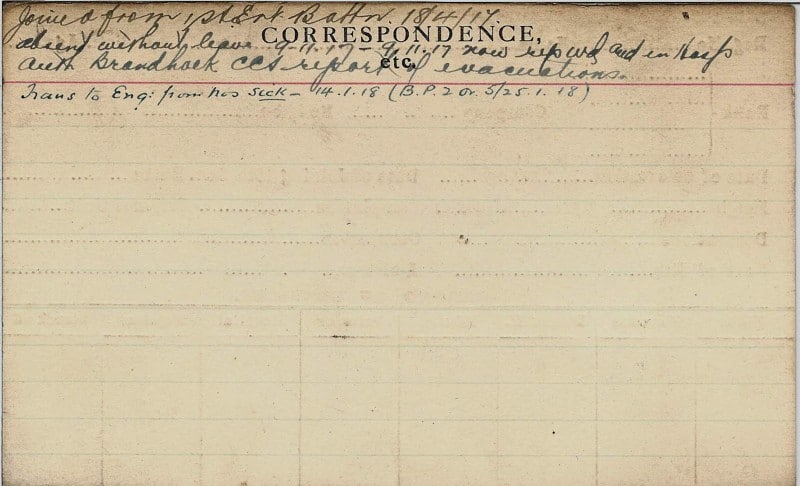 Joined from 1st Ent. Battn. 18/4/17.
CORRESPONDENCE,
absent without leave 9-11-17 - 9.11.17 now rep wd and in Hosp
etc.
auth Brandhoek CCS report of evacuations.
Trans to Eng: from hos sick - 14.1.18 (B.P. 2 or. 5/25.1.18)